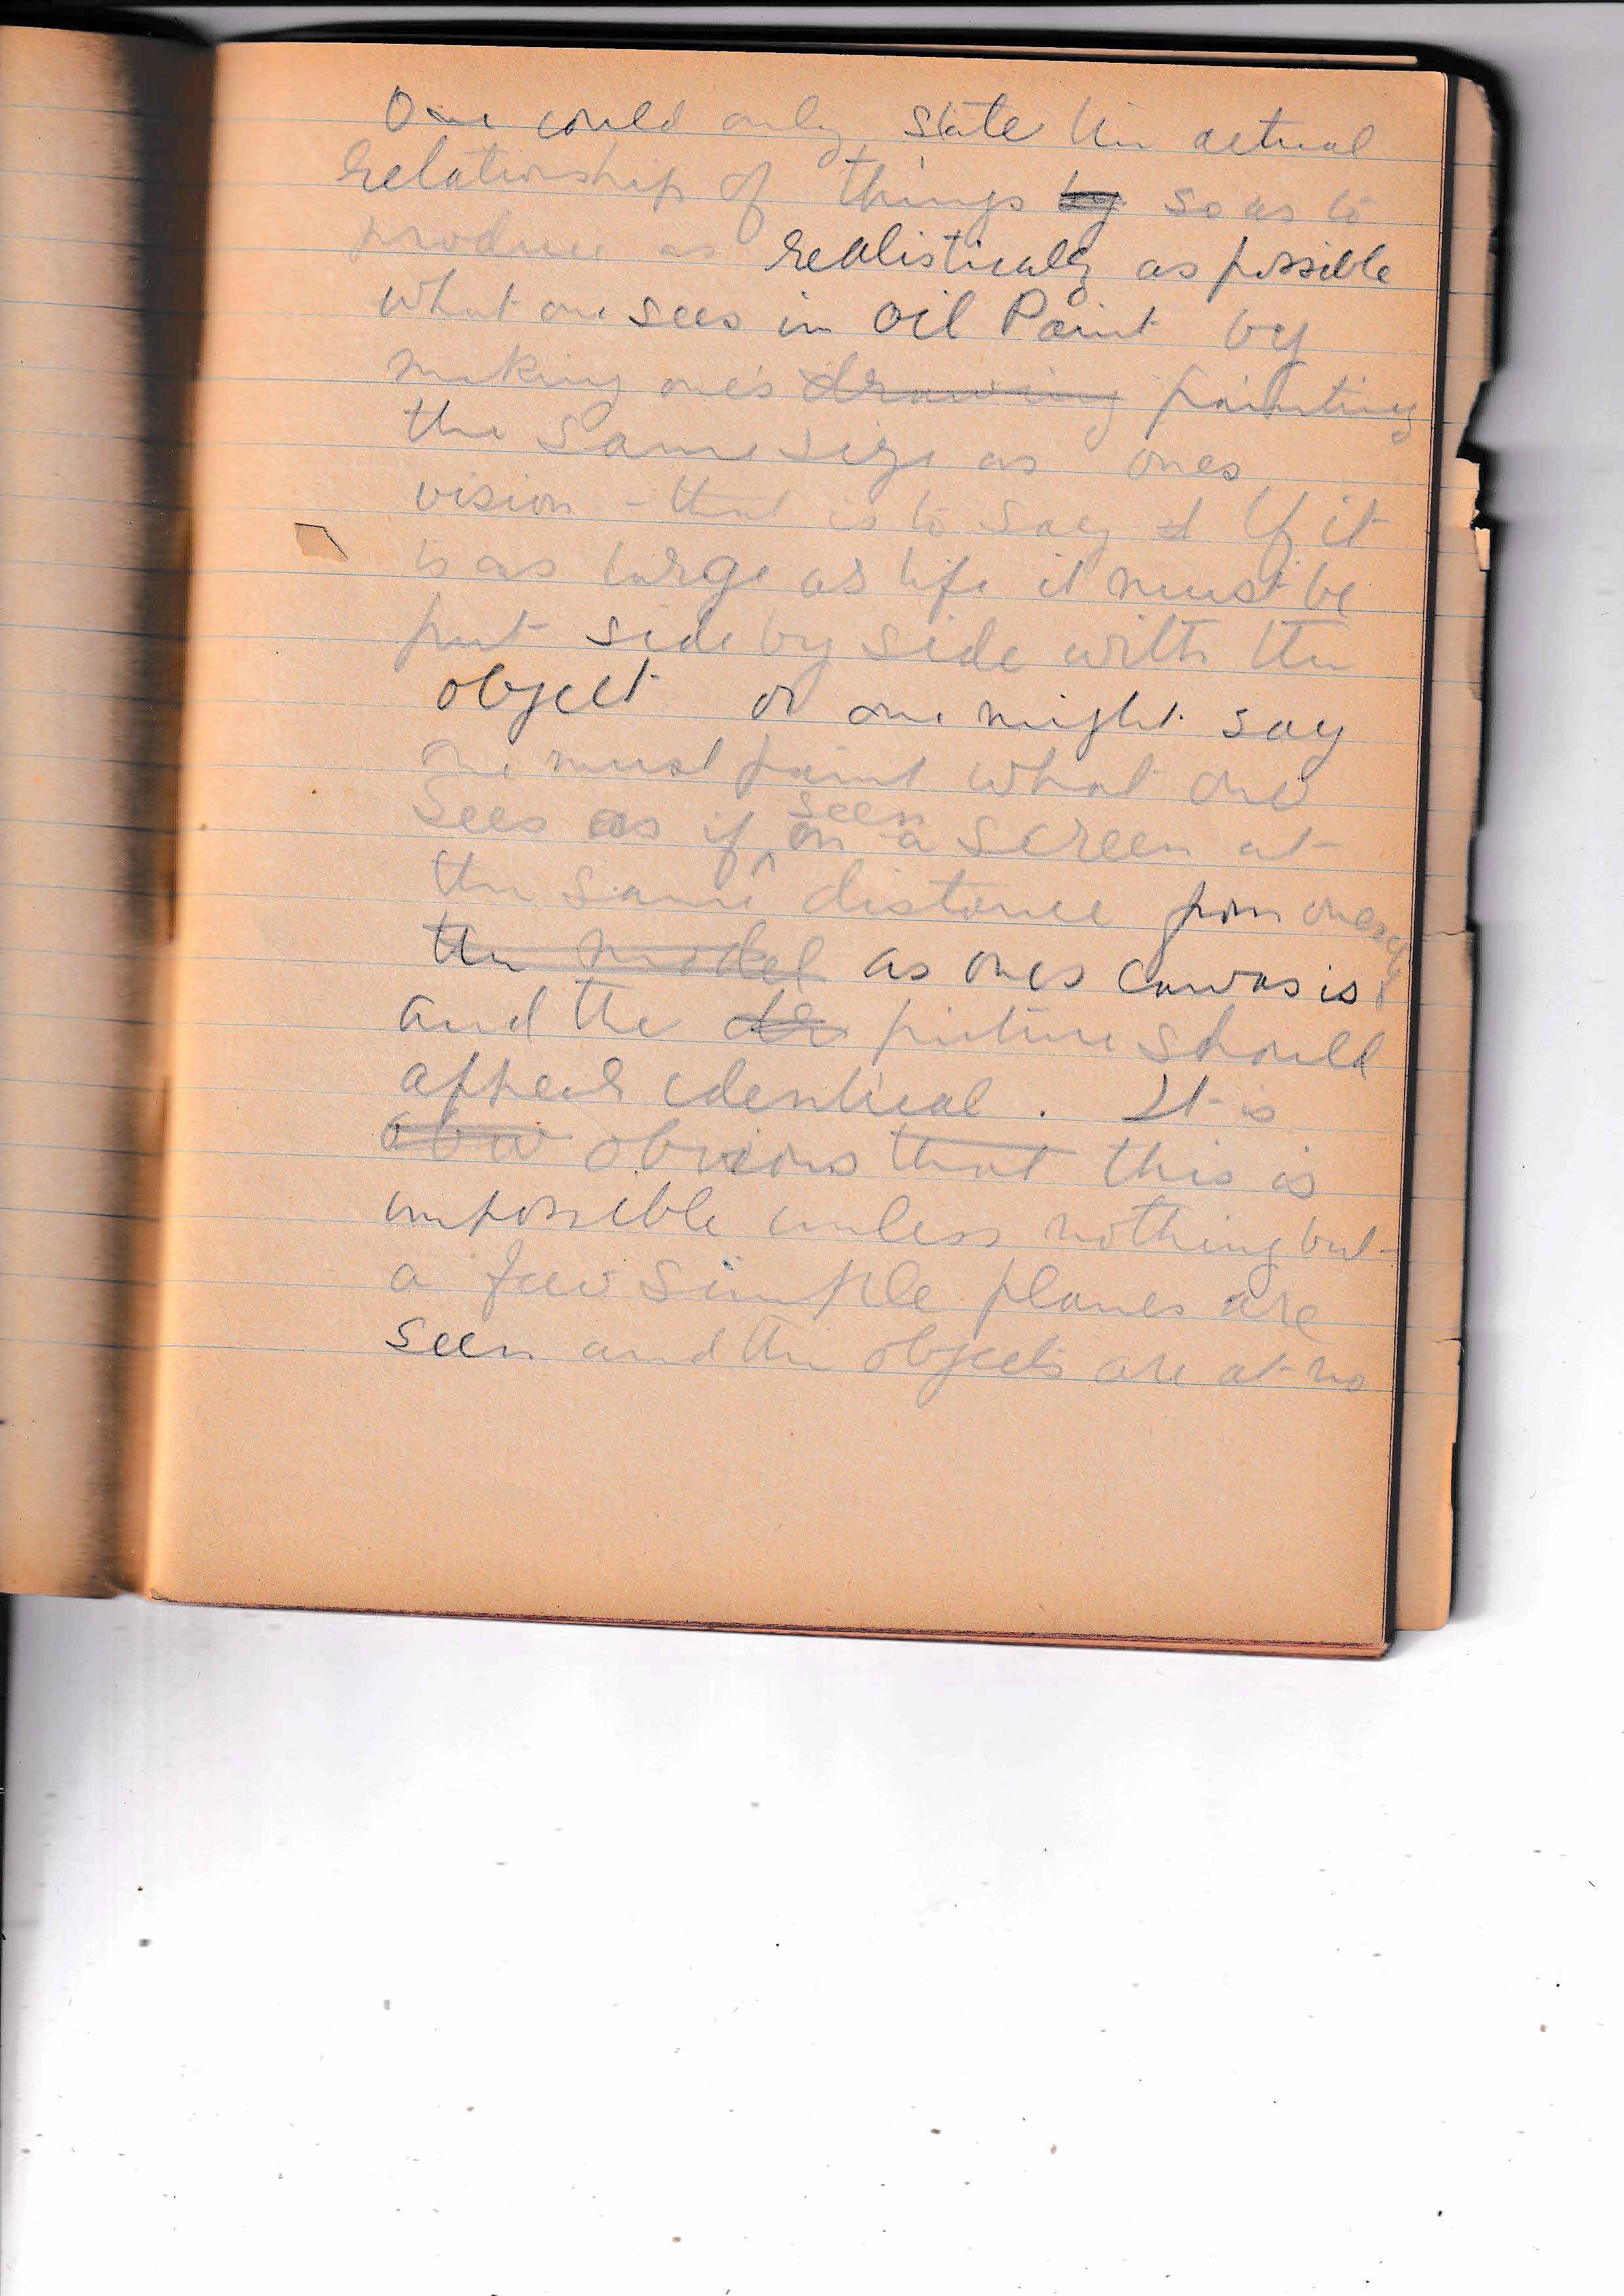 One could only state the actual
relationship of things by so as to
produce as realistically as possible
what one sees in oil Paint by
making one's drawing painting
the same size as ones
vision - that is to say If it
is as large as life it must be
put side by side with the
object or one might say
one must paint what one
sees as if seen on a screen at
the same distance from ones eye
the model as ones canvas is
and the dr picture should
appear identical. It is
obvious that this is
impossible unless nothing but
a few simple planes are
seen and the objects are at no